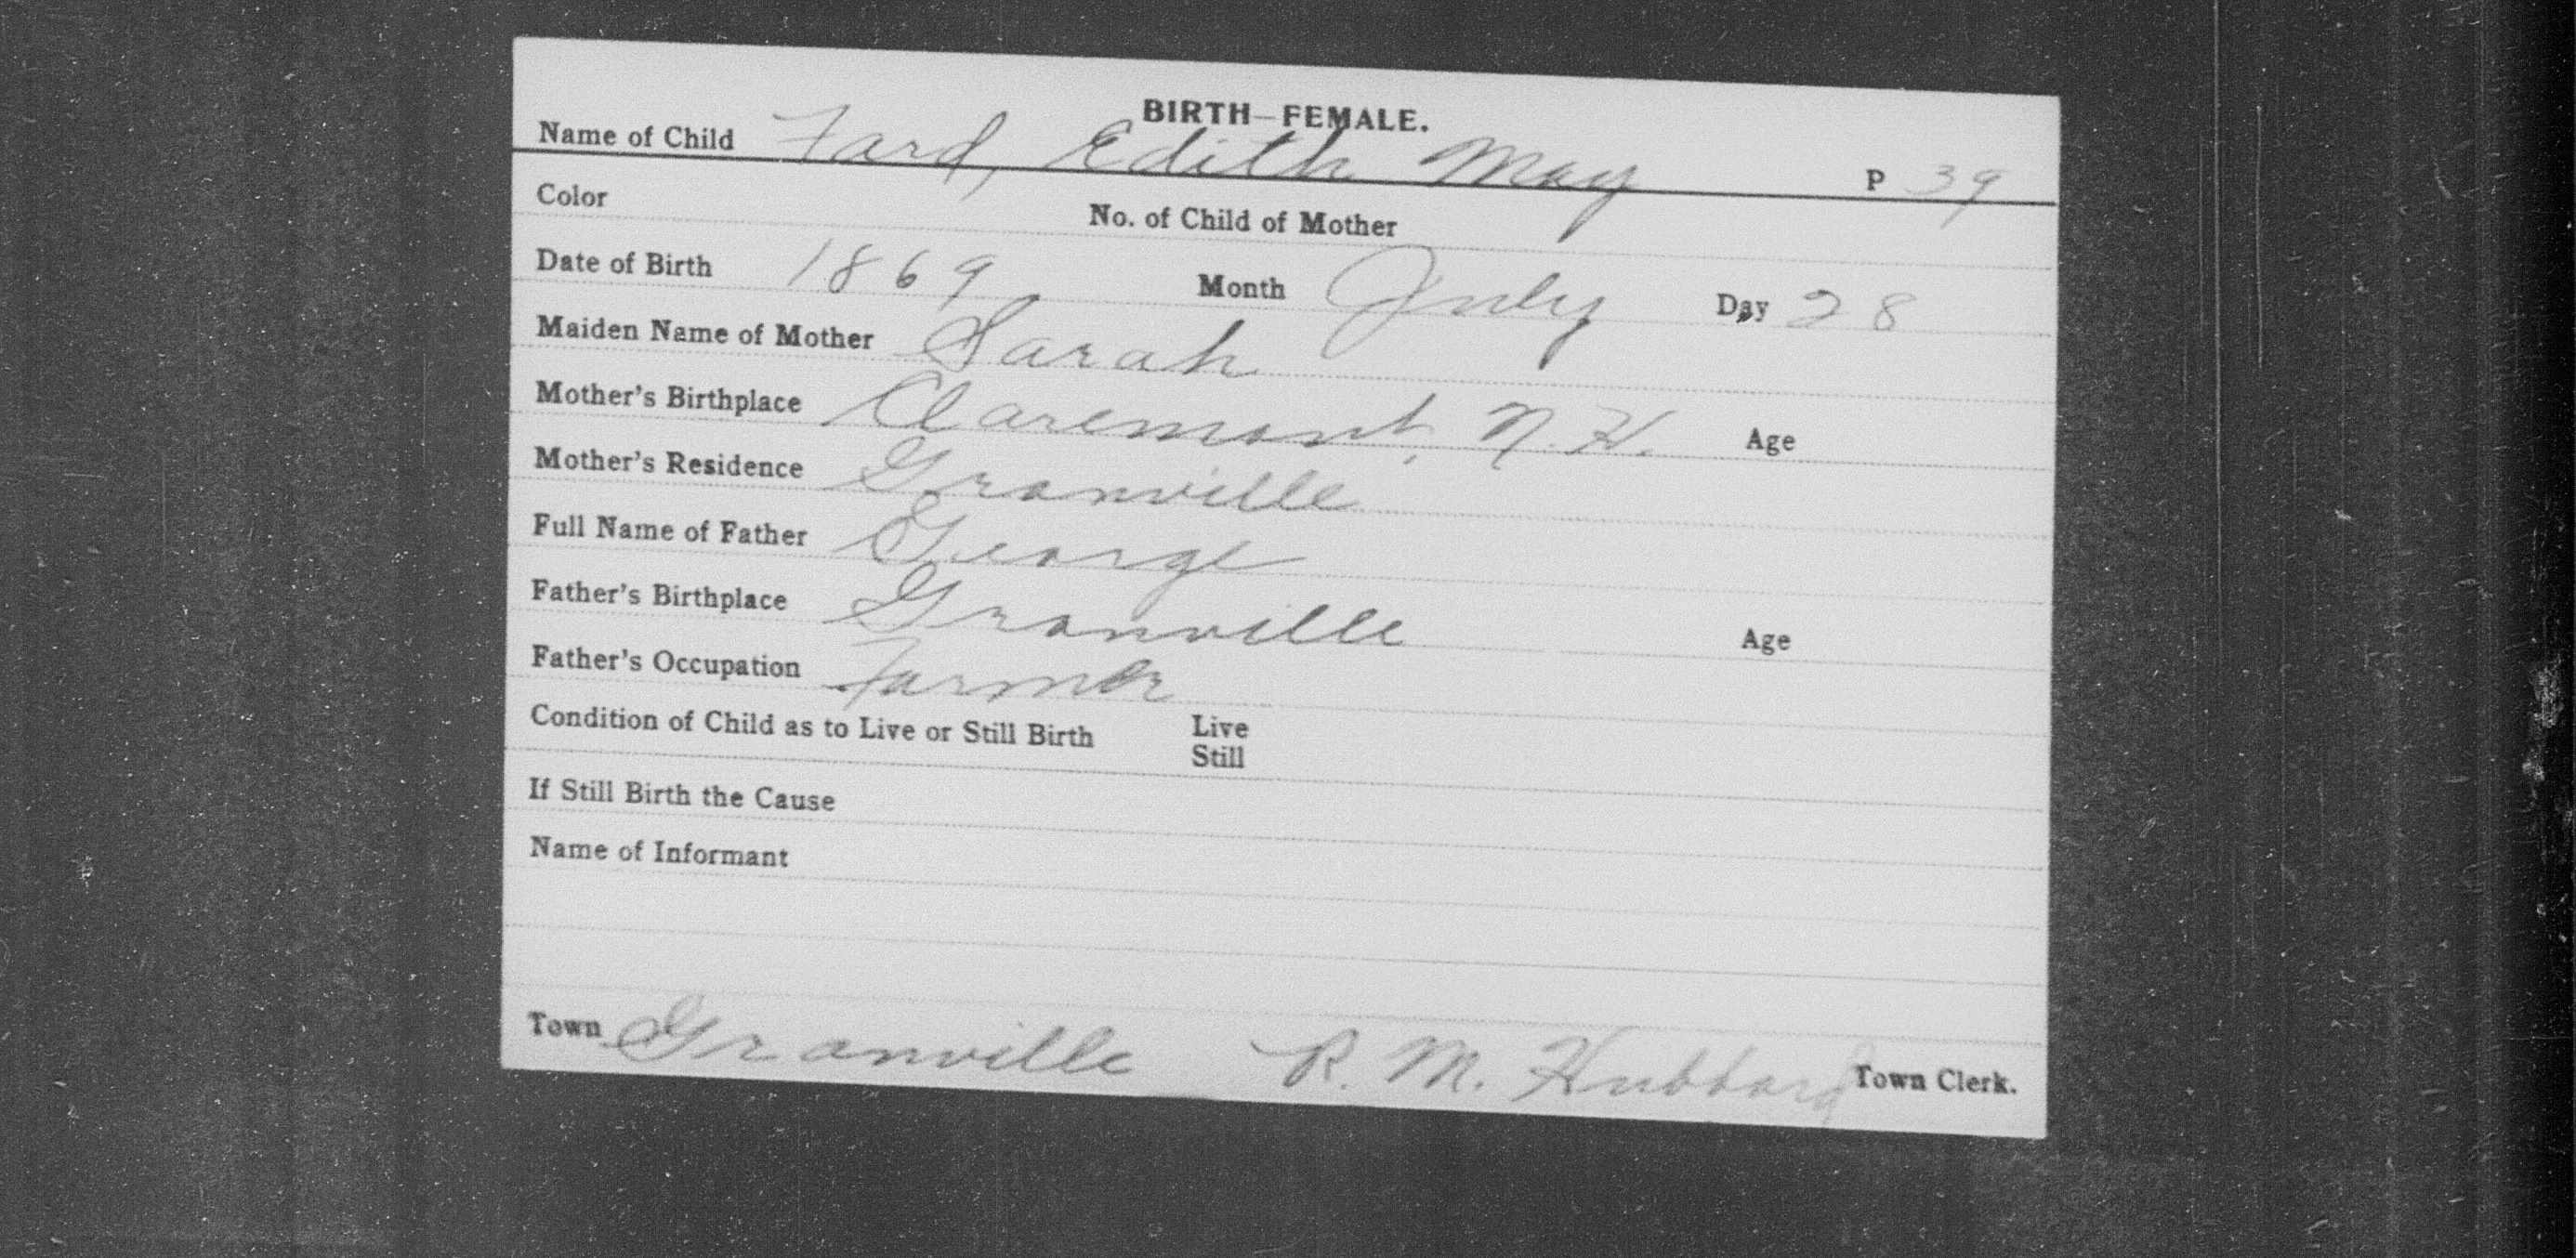 BIRTH—FEMALE.
Name of Child Ford, Edith May P 39
Color No. of Child of Mother
Date of Birth 1869 Month July Day 28
Maiden Name of Mother Sarah
Mother's Birthplace Claremont, N. H. Age
Mother's Residence Granville
Full Name of Father George
Father's Birthplace Granville Age
Father's Occupation Farmer
Condition of Child as to Live or Still Birth Live
Still
If Still Birth the Cause
Name of Informant
Town Granville R. M. Hubbard Town Clerk.